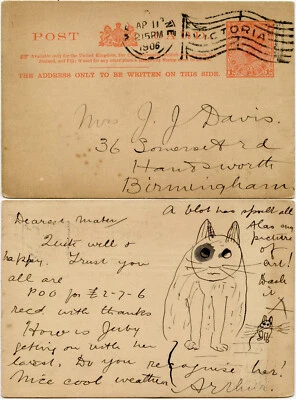 POST CARD
AP 11
2 15PM
1906
VICTORIA
THE ADDRESS ONLY TO BE WRITTEN ON THIS SIDE.
Mrs J. J Davis.
36 Somerset rd
Handsworth
Birmingham
A blot has spoilt all
Alas my
picture
of
art!
Dash
it
Dearest Mater
Quite well &
happy. Trust you
all are
POO for £2-7-6
recd with thanks
How is Juby
getting on with her
latest. Do you recognise her!
Nice cool weather
Arthur.